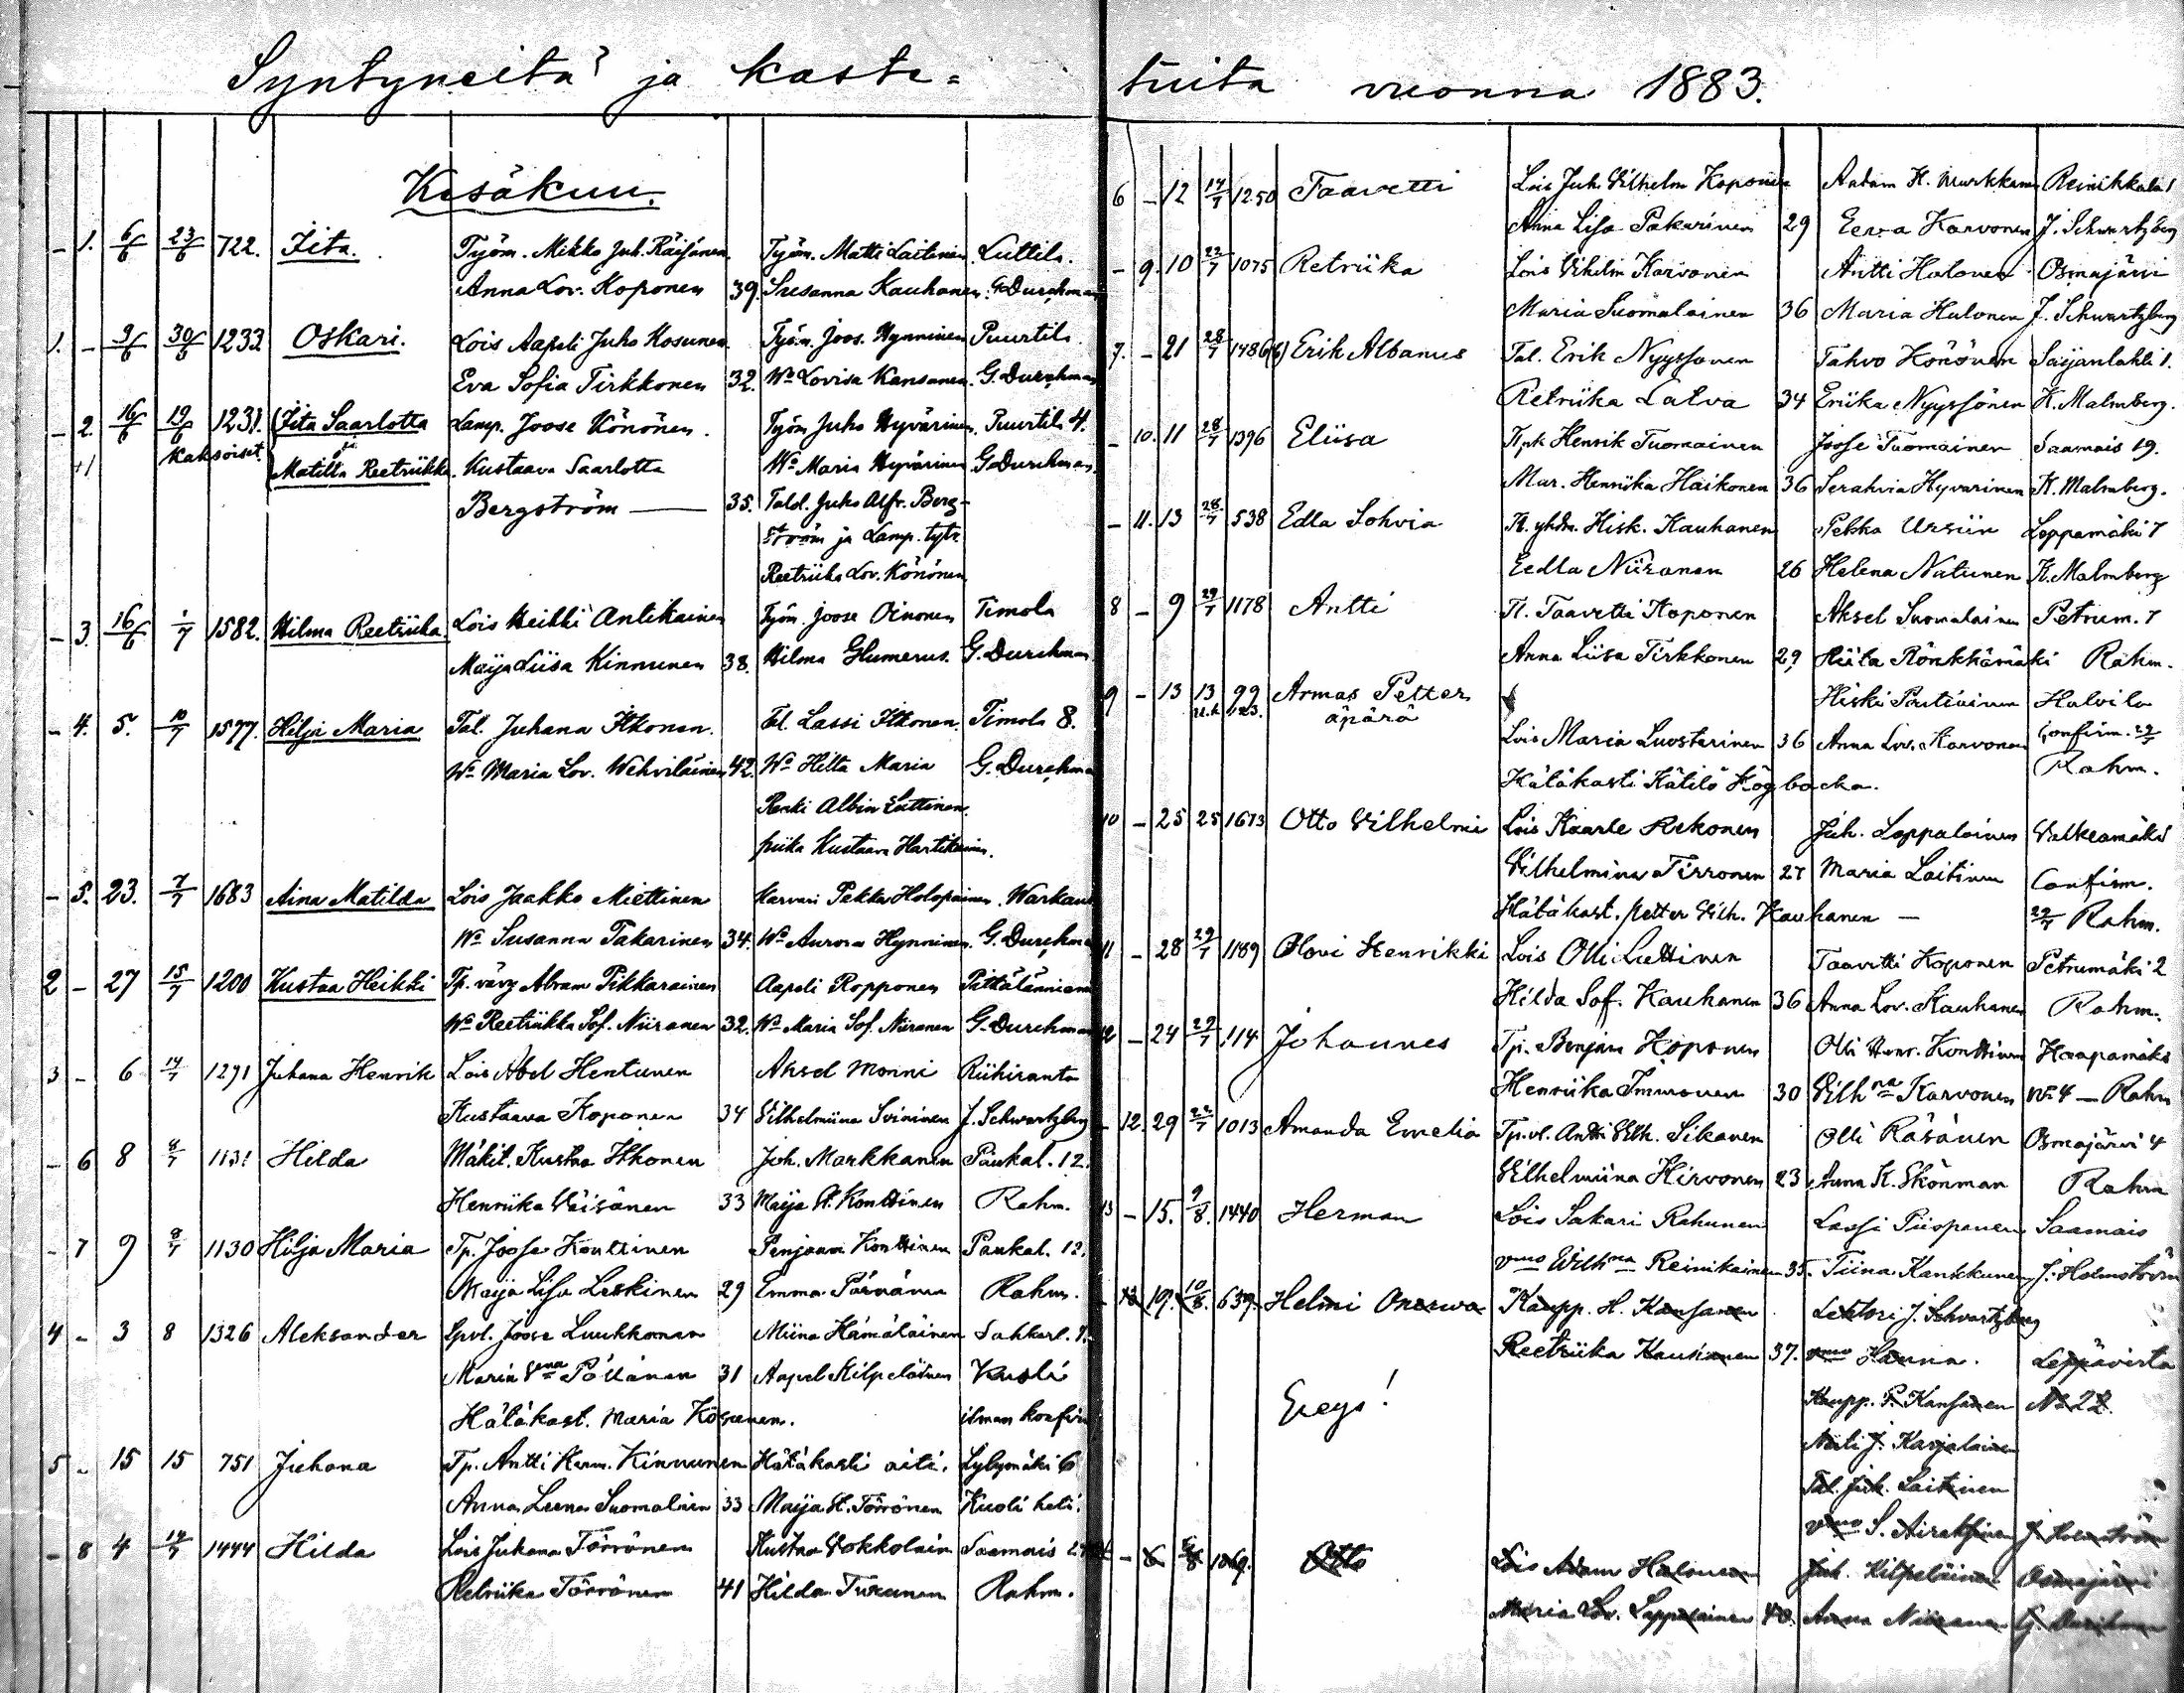 Syntyneitä ja kaste-
Kesäkuu.
- 1. 6/6 23/6 722. Iita. Työm. Mikko Juh. Räisänen. Työm. Matti Laitinen. Luttila.
Anna Lov. Koponen 39. Susanna Kauhanen. G. Durchman
1. - 9/6 30/6 1233. Oskari. Lois Aapeli Juho Kosunen. Työm. Joos. Hynninen Puurtila.
Eva Sofia Tirkkonen 32. Wo Lovisa Kansanen. G. Durchman
- 2. 16/6 19/6 1231. Iita Saarlotta Lamp. Joose Könönen. Työm Juho Hyvärinen. Puurtila 4.
+1 kaksoiset. ja
Matilta Reetriikka. Kustaava Saarlotta Wo Maria Hyvärinen G. Durchman.
Bergström — 35. Tald. Juho Alfr. Berg-
ström ja Lamp. tytr.
Reetriika Lov. Könönen
- 3. 16/6 1/7 1582. Hilma Reetriika. Lois Heikki Antikainen Työm. Joose Oinonen Timola
Maija Liisa Kinnunen 38. Hilma Glumerus. G. Durchman
- 4. 5. 10/7 1577. Hilja Maria Tal. Juhana Itkonen. Tal. Lassi Itkonen. Timola 8.
Wo Maria Lov. Wehviläinen 42. Wo Hilta Maria G. Durchman
Renki Albin Luttinen.
piika Kustaava Hartikainen.
- 5. 23. 7/7 1683 Aina Matilda Lois Jaakko Miettinen Karvari Pekka Holopainen. Warkaus
Wo Susanna Takarinen 34. Wo Aurora Hynninen. G. Durchman
2 - 27 15/7 1200 Kustaa Heikki Tp. värj Abram Pikkarainen Aapeli Ropponen Pitkälänniemi
Wo Reetriikka Sof. Niiranen 32. Wo Maria Sof. Niiranen G. Durchman
3 - 6 14/7 1291 Juhana Henrik Lois Abel Hentunen Aksel Monni Riihiranta
Kustaava Koponen 34 Vilhelmiina Svininen J. Schwartzberg
- 6 8 8/7 1131 Hilda Mäkit. Kustaa Itkonen Joh. Markkanen Paukal. 12.
Henriika Väisänen 33 Maija K. Konttinen Rahm.
- 7 9 8/7 1130 Hilja Maria Tp. Joose Konttinen Penjaam Konttinen Paukal. 12.
Maija Lisa Leskinen 29 Emma Pärnänen Rahm.
4 - 3 8 1326 Aleksander Spvl. Joose Luukkonen Miina Hämäläinen Sahkarl. 7.
Maria Vna Pöllänen 31 Aapel Kilpeläinen Kuoli
Hätäkast. Maria Kosunen. ilman konfir
5 - 15 15 751 Juhana Tp. Antti Herm. Kinnunen Hätäkasti äiti. Lylymäki 6
Anna Leena Suomalain 33 Maija K. Törrönen Kuoli heti.
- 8 4 14/7 1444 Hilda Lois Juhana Törrönen Kustaa Vokkolain Saamais 2
Retriika Törrönen 41 Hilda Turunen Rahm.
tuita vuonna 1883.
6 - 12 14/7 1250 Taavetti Lois Juh. Vilhelm Koponen Aadam H. Markkanen Reinikkala 1
Anna Lisa Pakarinen 29 Eeva Karvonen J. Schwartzberg
- 9. 10 22/7 1075 Retriika Lois Vihelm Karvonen Antti Halonen Osmajärvi
Maria Suomalainen 36 Maria Halonen J. Schwartzberg
7. - 21 28/7 1486 Erik Albanus Tal. Erik Nyyssonen Tahvo Könönen Saijanlahti 1.
Retriika Latva 34 Eriika Nyyssönen K. Malmberg.
- 10. 11 28/7 1396 Eliisa Tl,pk Henrik Tuomainen Joose Tuomainen Saamais 19.
Mar. Henriika Haikonen 36 Serahvia Hyvarinen K. Malmberg.
- 11. 13 28/7 538 Edla Sohvia Tl. yhdm. Hisk. Kauhanen Pekka Ursiin Loppamäki 7
Eedla Niiranen 26 Helena Natunen K. Malmberg
8 - 9 29/7 1178 Antti Tl. Taavetti Koponen Aksel Suomalainen Petrum. 7
Anna Liisa Tirkkonen 29 Hiita Rönkkämäki Rahm.
9 - 13 13 99 Armas Petter Hiski Pautiainen Halvila
äpärä Lois Maria Luostarinen 36 Anna Lov. Karvonen Confirm. 29/7
Rahm.
Hätäkasti Kätilö Högbacka.
10 - 25 25 1673 Otto Vilhelmi Lois Kaarle Rekonen Juh. Lappalainen Valkeamäki
Vilhelmina Tirronen 27 Maria Laitinen Confirm.
Hätäkast. Petter Vilh. Kauhanen — 29/7 Rahm.
11 - 28 29/7 1189 Olovi Henrikki Lois Olli Luttinen Taavetti Koponen Petrumäki 2
Hilda Sof. Kauhanen 36 Anna Lov. Kauhanen Rahm.
12 - 24 29/7 114 Johannes Tp. Benjam Koponen Olli Henr. Konttinen Haapamäki
Henriika Immonen 30 Vilhna Karvonen No 4 — Rahm
- 12. 29 22/7 1013 Amanda Emelia Tp.vl. Antti Vilh. Sikanen Olli Räsänen Osmajärvi 4
Vilhelmiina Hirvonen 23 Anna K. Ekönman Rahm
13 - 15. 9/8. 1440 Herman Lois Sakari Rahunen Lassi Piispanen Saamais
vmo Wilhna Reinikainen 35. Tiina Kankkunen J. Holmström
- 13 19. 10/8. 639. Helmi Onerva Kaupp. H. Kansanen Lehtori J. Schvartzberg
Reetriika Kauhanen 37. vmo Hanna. Leppävirta
Kaupp. P. Kansanen No 22.
Ereys! Neiti J. Karjalainen
Tal. Juh. Laitinen
vmo S. Airaksinen J. Holmström
- 6 5/8 1069. Otto Lois Adam Halonen Juh. Kilpeläinen Osmajärvi
Maria Lov. Lappalainen 40. Anna Niiranen G. Durchman